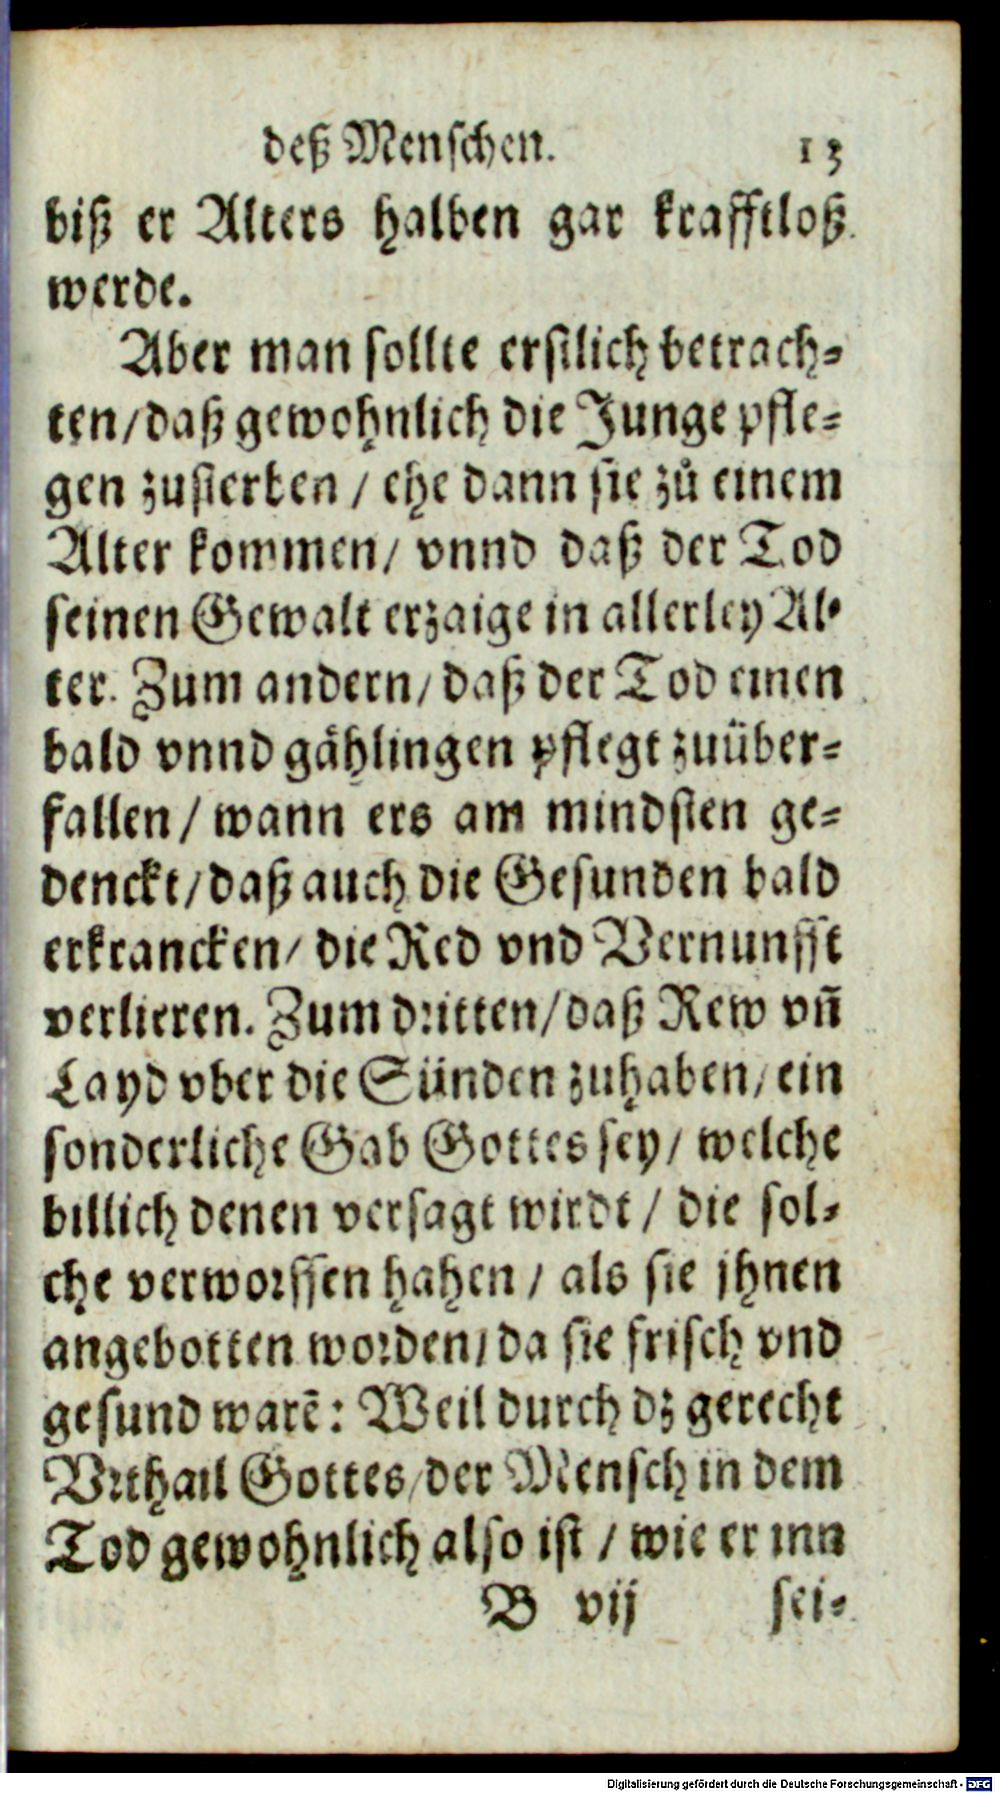 deß Menschen. 13
biß er Alters halben gar krafftloß
werde.
Aber man sollte erstlich betrach-
ten/daß gewohnlich die Junge pfle-
gen zusterben / ehe dann sie zů einem
Alter kommen/ vnnd daß der Tod
seinen Gewalt erzaige in allerley Al-
ter. Zum andern/daß der Tod einen
bald vnnd gählingen pflegt zuüber-
fallen / wann ers am mindsten ge-
denckt/daß auch die Gesunden bald
erkrancken/ die Red vnd Vernunfft
verlieren. Zum dritten/daß Rew vñ
Layd vber die Sünden zuhaben/ein
sonderliche Gab Gottes sey/ welche
billich denen versagt wirdt / die sol-
che verworffen hahen / als sie jhnen
angebotten worden/da sie frisch vnd
gesund warẽ: Weil durch dz gerecht
Vrthail Gottes/der Mensch in dem
Tod gewohnlich also ist / wie er inn
B vij sei-
Digitalisierung gefördert durch die Deutsche Forschungsgemeinschaft - DFG